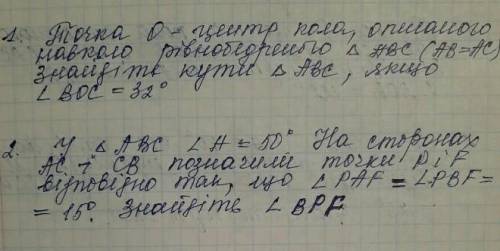 1. Точка О - центр кола, описаного
навколо рівнобедреного △ ABC (AB=AC)
Знайдіть кути △ ABC, якщо
∠ BOC = 32°
2. У △ ABC ∠A = 50° На сторонах
AC і CB позначили точки P і F
відповідно так, що ∠ PAF = ∠PBF =
= 15°. Знайдіть ∠ BPF.